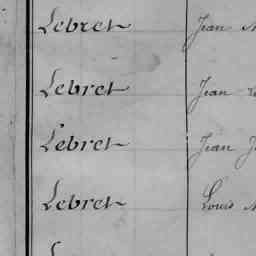 Lebret Jean
Lebret Jean
Lebret Jean
Lebret Louis